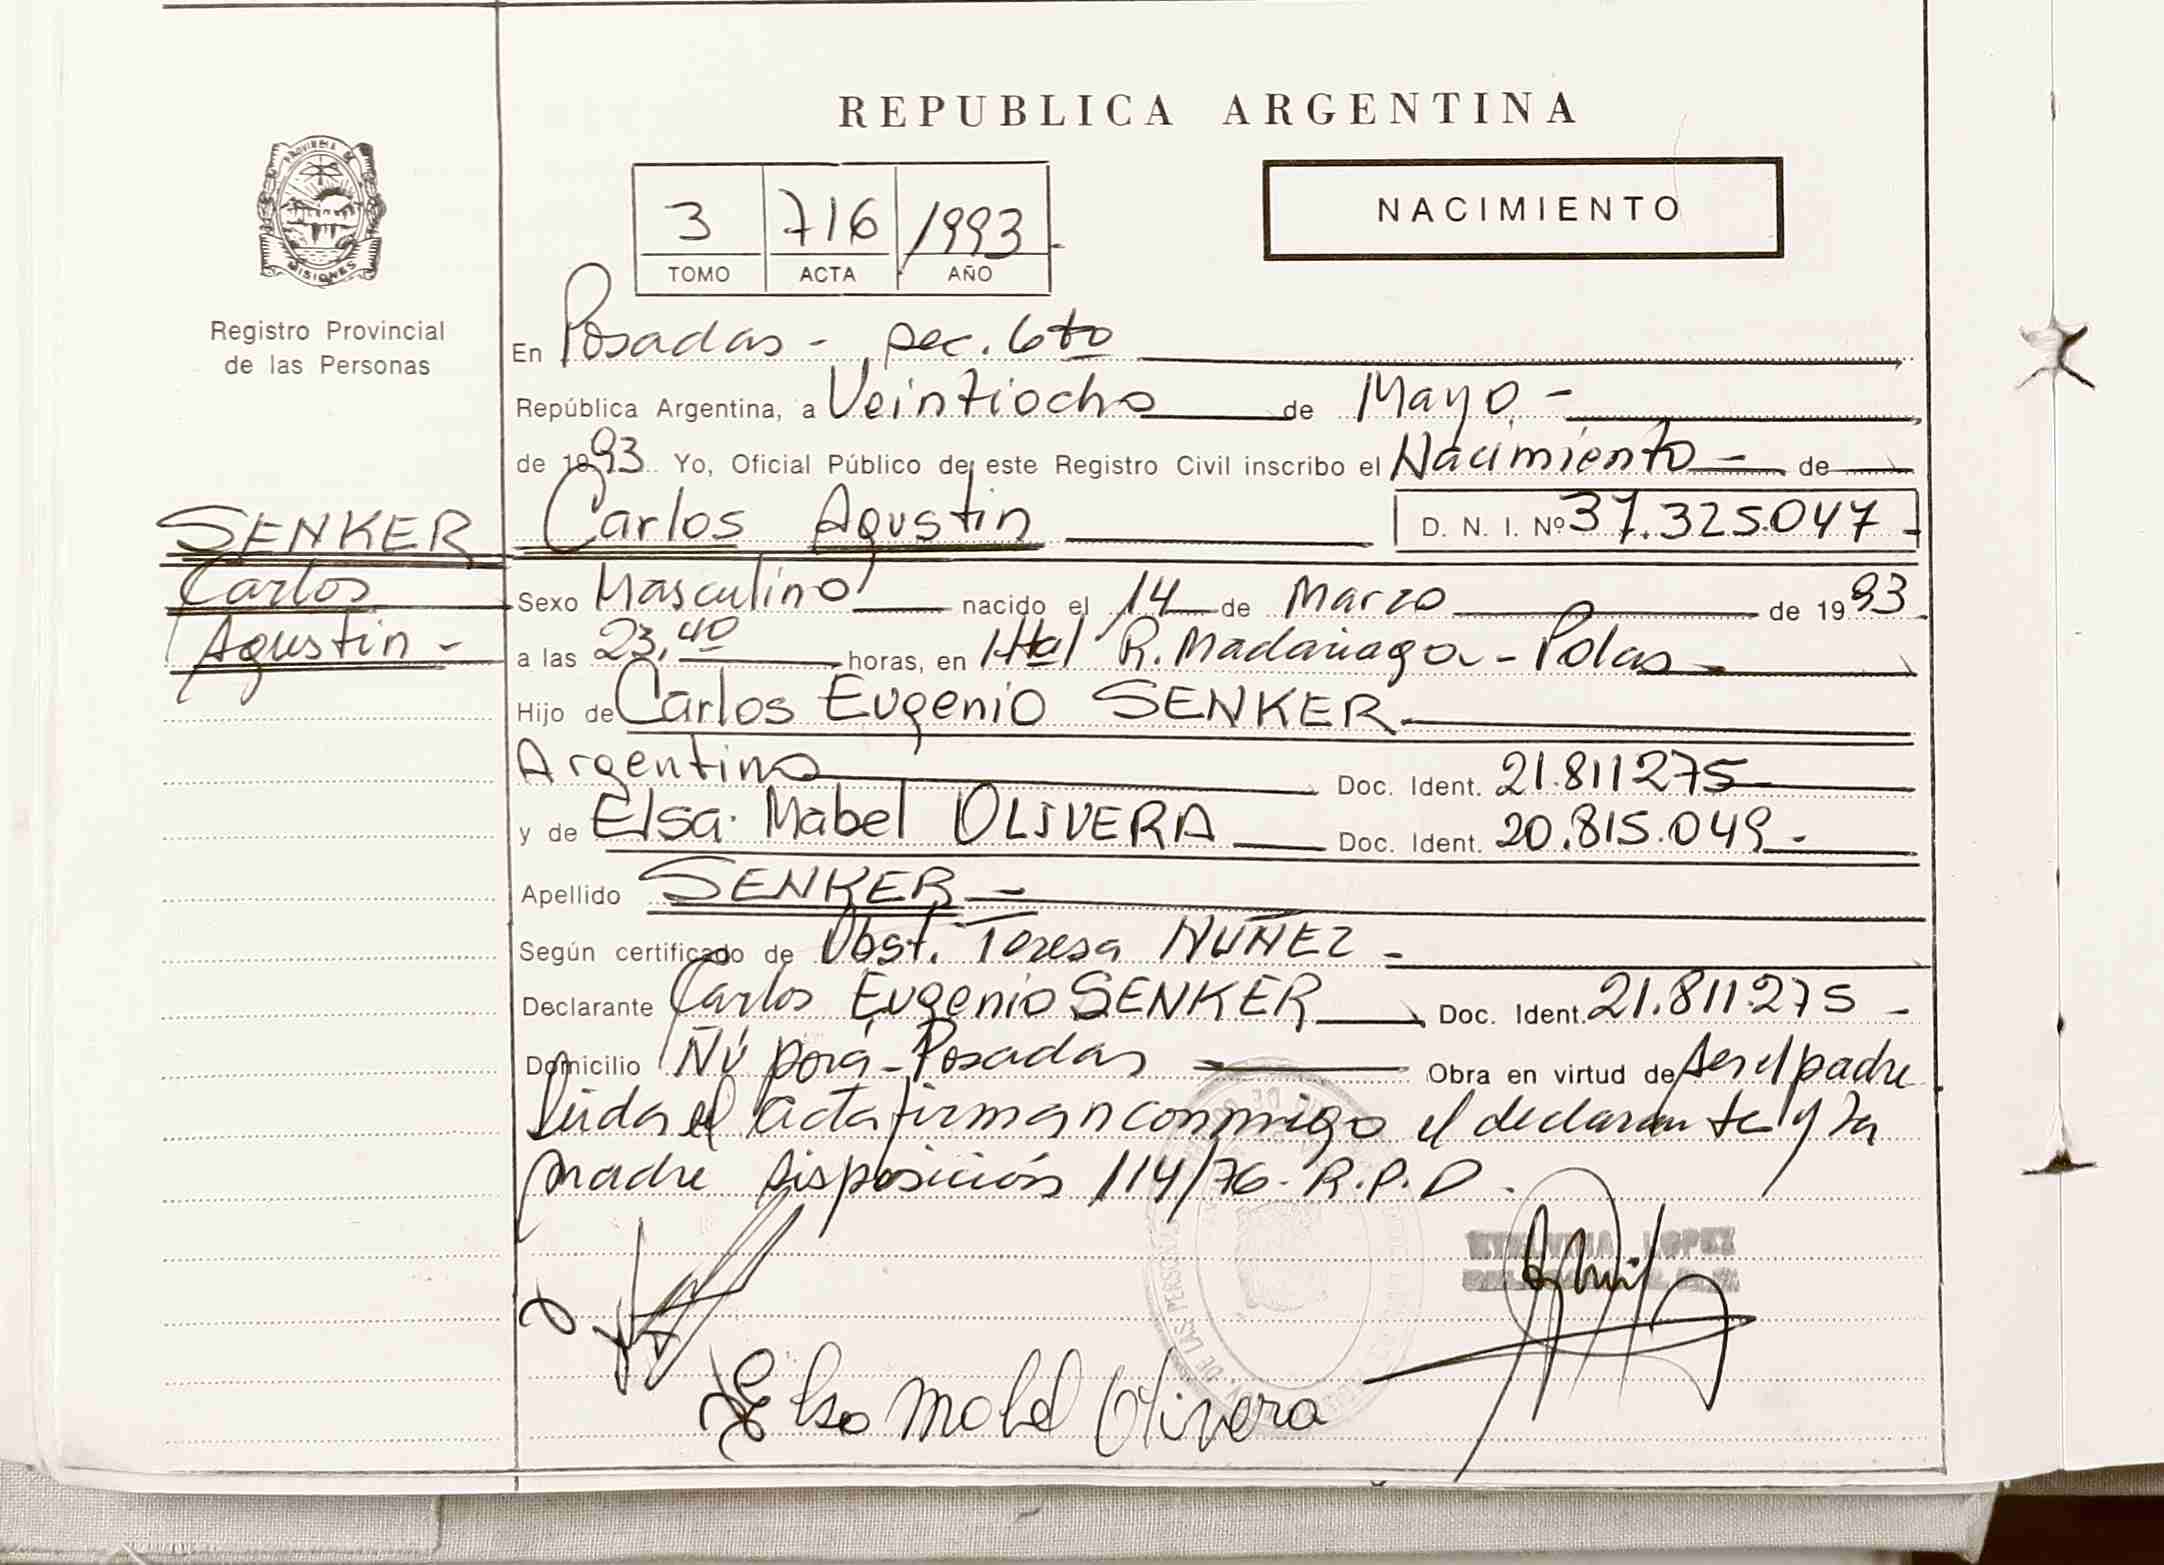 REPUBLICA ARGENTINA
PROVINCIA DE
MISIONES
Registro Provincial
de las Personas
3 716 1993
TOMO ACTA AÑO
NACIMIENTO
En Posadas - sec. 6to
República Argentina, a Veintiocho de Mayo -
de 1993 Yo, Oficial Público de este Registro Civil inscribo el Nacimiento - de
SENKER
Carlos
Agustin -
Carlos Agustin D. N. I. Nº 37.325.047 -
Sexo Masculino nacido el 14 de Marzo de 1993
a las 23,40 horas, en Htal R. Madariaga - Pdas -
Hijo de Carlos Eugenio SENKER
Argentino Doc. Ident. 21.811275
y de Elsa Mabel OLIVERA Doc. Ident. 20.815.049 -
Apellido SENKER -
Según certificado de Obst. Teresa NUÑEZ -
Declarante Carlos Eugenio SENKER Doc. Ident. 21.811.275 -
Domicilio Ñú porá - Posadas Obra en virtud de ser el padre
Leida el acta firman conmigo el declarante y la
madre Disposición 114/76 - R.P.D.
LOPEZ
DE LAS PERSONAS
Elsa Mabel Olivera